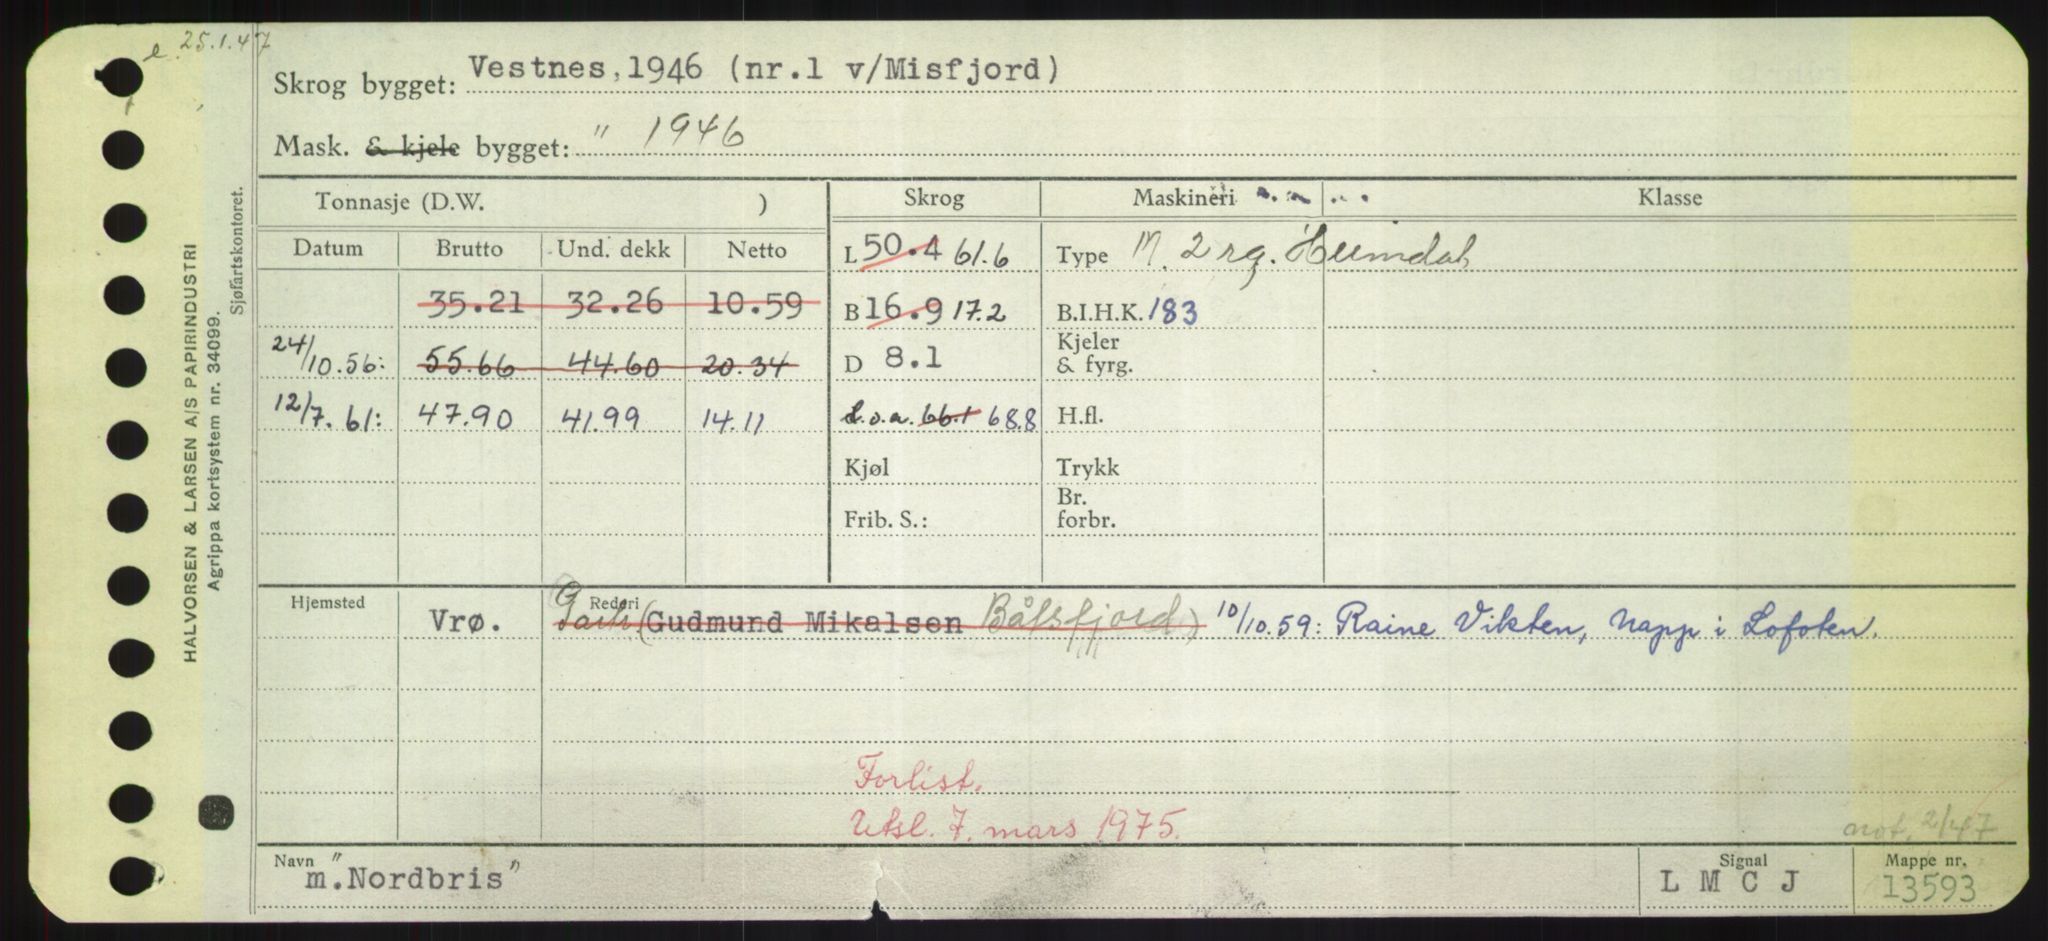 e. 25.1.47
Skrog bygget: Vestnes, 1946 (nr.1 v/Misfjord)
Mask. & kjele bygget: " 1946
Tonnasje (D.W. ) Skrog Maskineri Klasse
Datum Brutto Und. dekk Netto L 50.4 61.6 Type M. 2 rg. Heimdal
35.21 32.26 10.59 B 16.9 17.2 B.I.H.K. 183
24/10.56: 55.66 44.60 20.34 D 8.1 Kjeler & fyrg.
12/7.61: 47.90 41.99 14.11 L.o.a. 66.1 68.8 H.fl.
Kjøl Trykk
Frib. S.: Br. forbr.
Hjemsted Rederi
Vrø. (Gudmund Mikalsen Båtsfjord) 10/10.59: Raine Vikten, Napp i Lofoten.
Forlist.
Utsl. 7. mars 1975.
not. 2/47
Navn Signal Mappe nr.
m. "Nordbris" L M C J 13593
HALVORSEN & LARSEN A/S PAPIRINDUSTRI
Agrippa kortsystem nr. 34099.
Sjøfartskontoret.